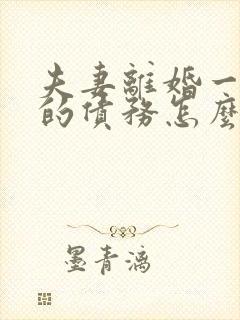 夫妻離婚一
的債務怎麼
墨青漓